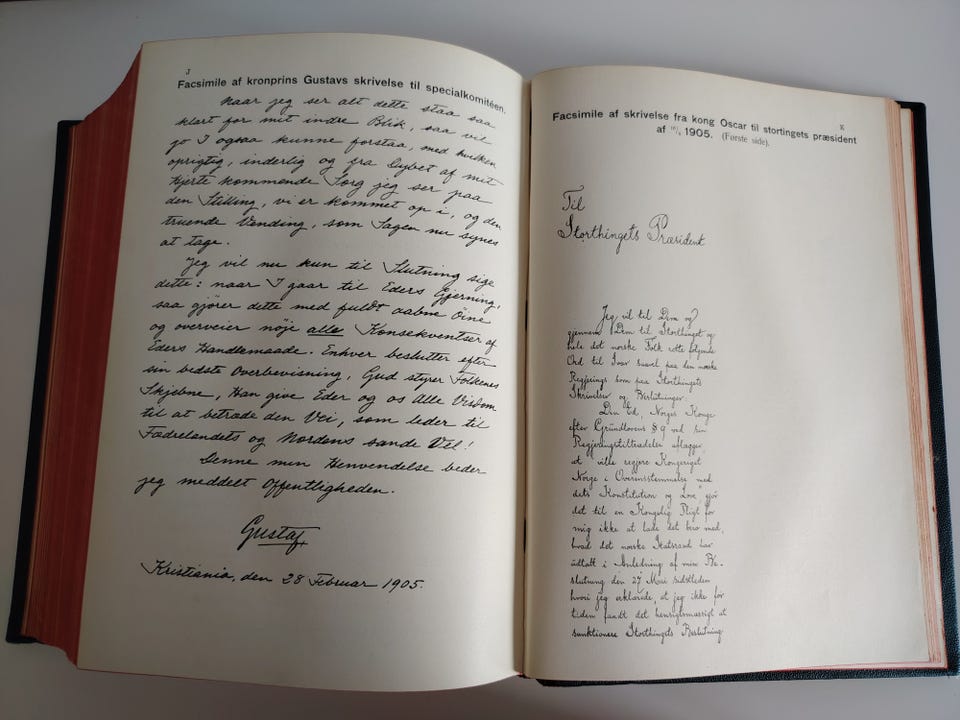 J
Facsimile af kronprins Gustavs skrivelse til specialkomitéen.
Naar jeg ser alt dette staa saa
klart for mit indre Blik, saa vil
jo I ogsaa kunne forstaa, med hvilken
oprigtig, inderlig og fra Dybet af mit
Hjerte kommende Sorg jeg ser paa
den Stilling, vi er kommet op i, og den
truende Vending, som Sagen nu synes
at tage.
Jeg vil nu kun til Slutning sige
dette: naar I gaar til Eders Gjerning,
saa gjører dette med fuldt aabne Öine
og overveier nöje alle Konsekventser af
Eders Handlemaade. Enhver beslutter efter
sin bedste Overbevisning, Gud styrer Folkenes
Skjebne, Han give Eder og os Alle Visdom
til at betræde den Vei, som leder til
Fædrelandets og Nordens sande Vel!
Denne min Henvendelse beder
jeg meddelt Offentligheden.
Gustaf
Kristiania, den 28 Februar 1905.
K
Facsimile af skrivelse fra kong Oscar til stortingets præsident
af 10/6 1905. (Første side).
Til
Storthingets Præsident
Jeg vil til Dem og
gjennem Dem til Storthinget og
hele det norske Folk rette følgende
Ord til Svar saavel paa den norske
Regjerings som paa Storthingets
Skrivelser og Beslutninger.
Den Ed, Norges Konge
efter Grundlovens § 9 ved sin
Regjeringstiltrædelse aflægger,
at "ville regjere Kongeriget
Norge i Overensstemmelse med
dets Konstitution og Love" gjör
det til en Kongelig Pligt for
mig ikke at lade det bero med,
hvad det norske Statsraad har
udtalt i Anledning af min Be-
slutning den 27 Mai sidstleden
hvori jeg erklærede, at jeg ikke for
tiden fandt det hensigtsmæssigt at
sanktionere Storthingets Beslutning